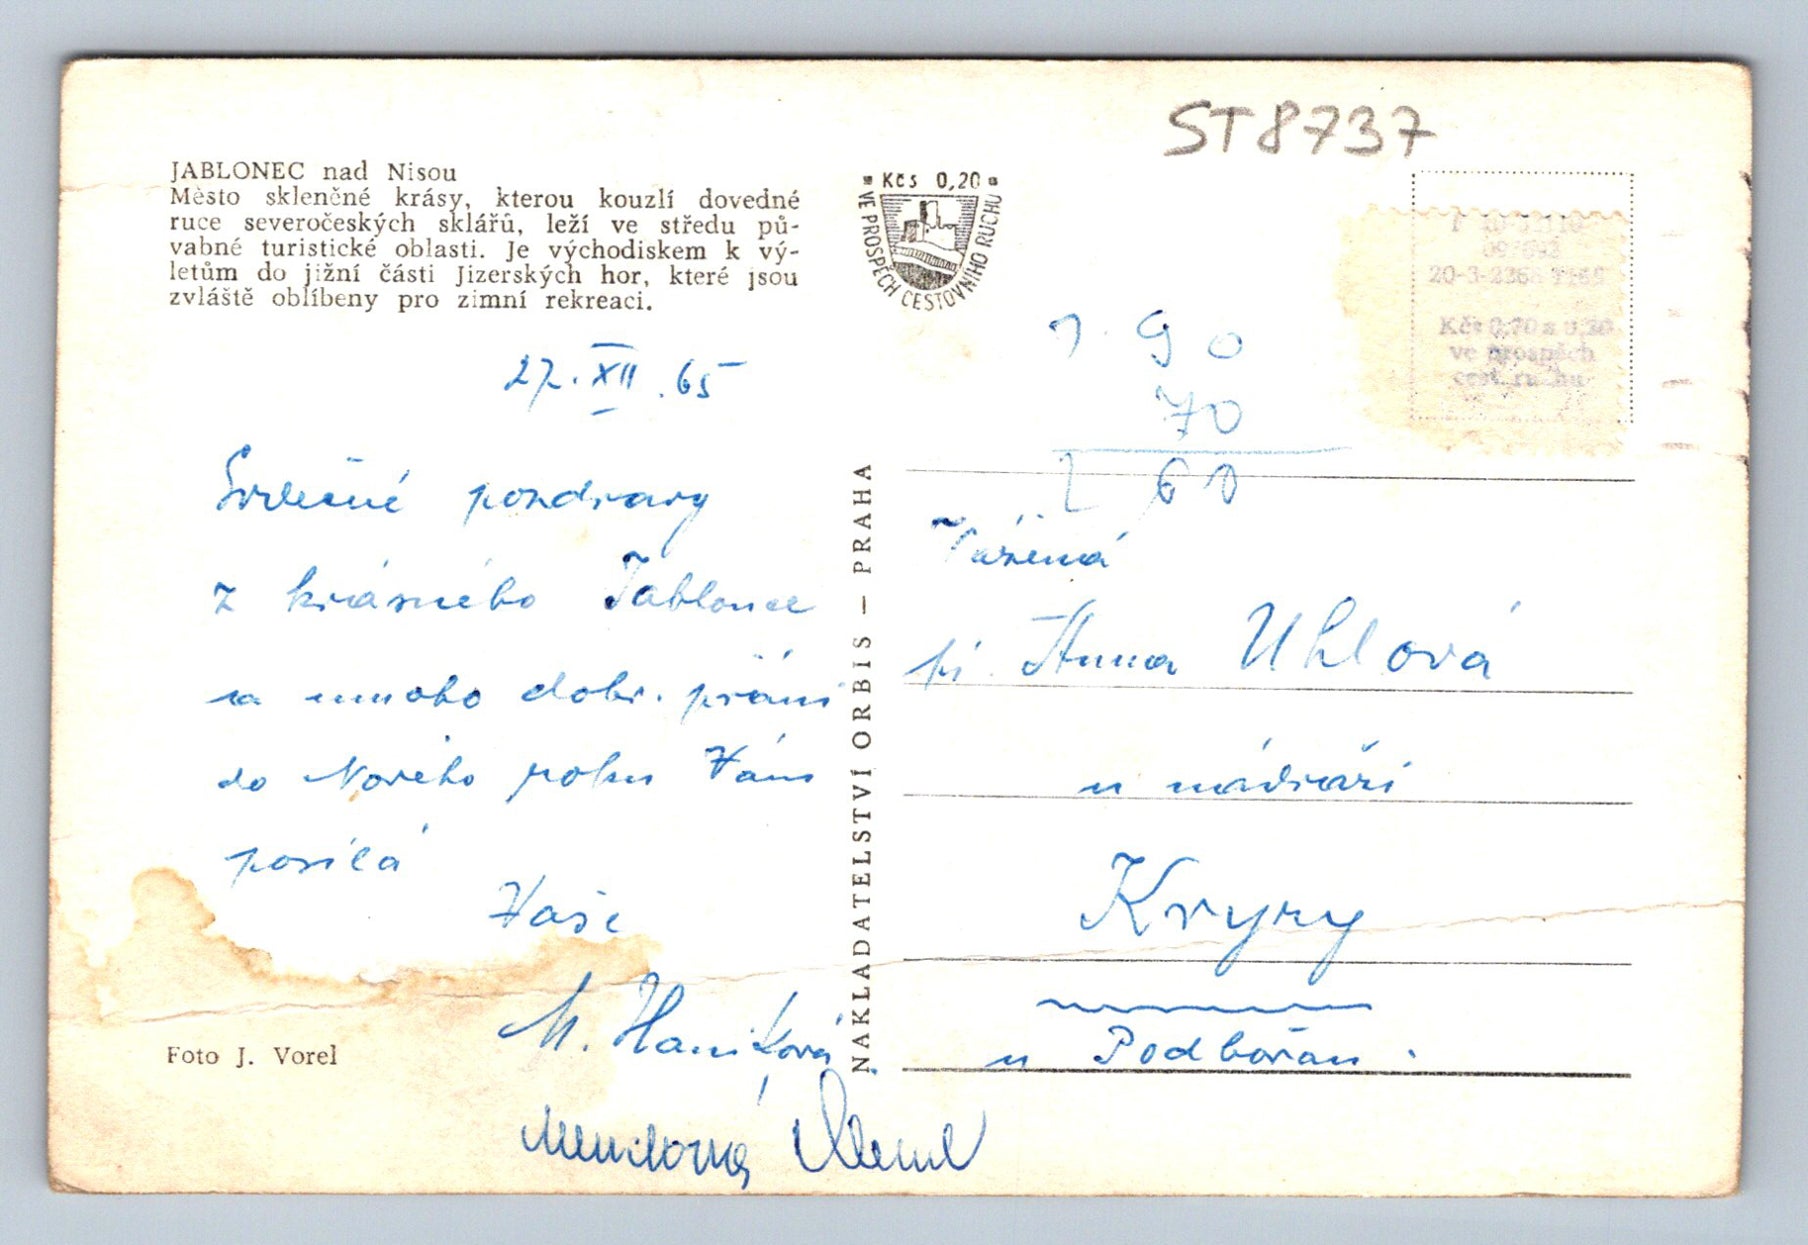 ST8737
JABLONEC nad Nisou
Město skleněné krásy, kterou kouzlí dovedné
ruce severočeských sklářů, leží ve středu pů-
vabné turistické oblasti. Je východiskem k vý-
letům do jižní části Jizerských hor, které jsou
zvláště oblíbeny pro zimní rekreaci.
Kčs 0,20
VE PROSPĚCH CESTOVNÍHO RUCHU
20-3-
Kčs 0,70 a 0,20
ve prospěch
cest. ruchu
27. XII. 65
Srdečné pozdravy
z krásného Jablonce
a mnoho dobr. přání
do Nového roku Vám
posílá
Vaše
M. Haniková
Foto J. Vorel
NAKLADATELSTVÍ ORBIS — PRAHA
1.90
70
Vážená
pí. Anna Uhlová
u nádraží
Kryry
u Podbořan.